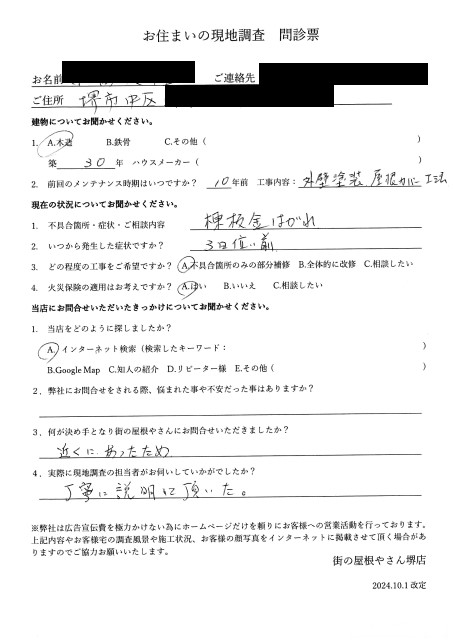 お住まいの現地調査　問診票
お名前　ご連絡先
ご住所　堺市中区
建物についてお聞かせください。
1. A.木造　B.鉄骨　C.その他（　）
築　30　年　ハウスメーカー（　）
2. 前回のメンテナンス時期はいつですか？　10年前　工事内容：外壁塗装　屋根カバー工法
現在の状況についてお聞かせください。
1. 不具合箇所・症状・ご相談内容　棟板金はがれ
2. いつから発生した症状ですか？　3日位い前
3. どの程度の工事をご希望ですか？　A.不具合箇所のみの部分補修　B.全体的に改修　C.相談したい
4. 火災保険の適用はお考えですか？　A.はい　B.いいえ　C.相談したい
当店にお問合せいただいたきっかけについてお聞かせください。
1. 当店をどのように探しましたか？
A.インターネット検索（検索したキーワード：　）
B.Google Map　C.知人の紹介　D.リピーター様　E.その他（　）
2．弊社にお問合せをされる際、悩まれた事や不安だった事はありますか？
3．何が決め手となり街の屋根やさんにお問合せいただきましたか？
近くにあったため
4．実際に現地調査の担当者がお伺いしていかがでしたか？
丁寧に説明して頂いた。
※弊社は広告宣伝費を極力かけない為にホームページだけを頼りにお客様への営業活動を行っております。
上記内容やお客様宅の調査風景や施工状況、お客様の顔写真をインターネットに掲載させて頂く場合があ
りますのでご協力お願いいたします。
街の屋根やさん堺店
2024.10.1 改定